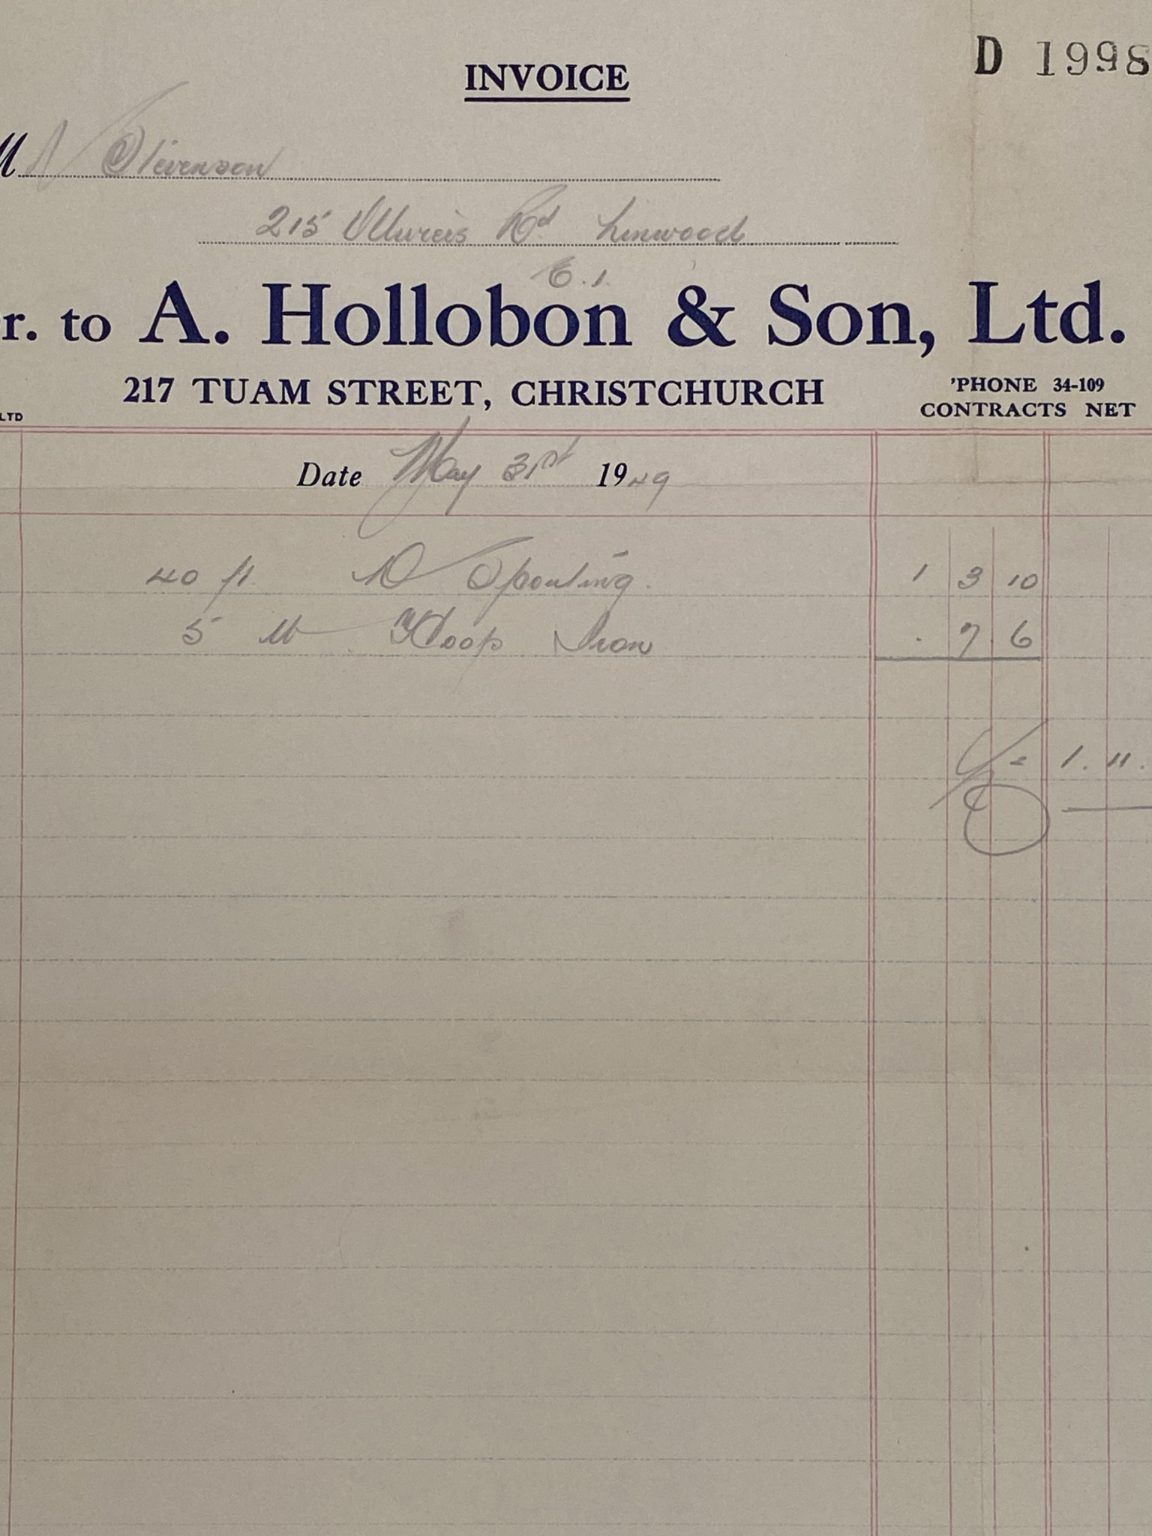 D 1998
INVOICE
M Stevenson
215 Rd Linwood
E.1.
r. to A. Hollobon & Son, Ltd.
217 TUAM STREET, CHRISTCHURCH
'PHONE 34-109
CONTRACTS NET
LTD
Date May 31st 1949
40 ft. D Spouting. 1 3 10
5 lb Hoop Iron . 7. 6
= 1. 11.